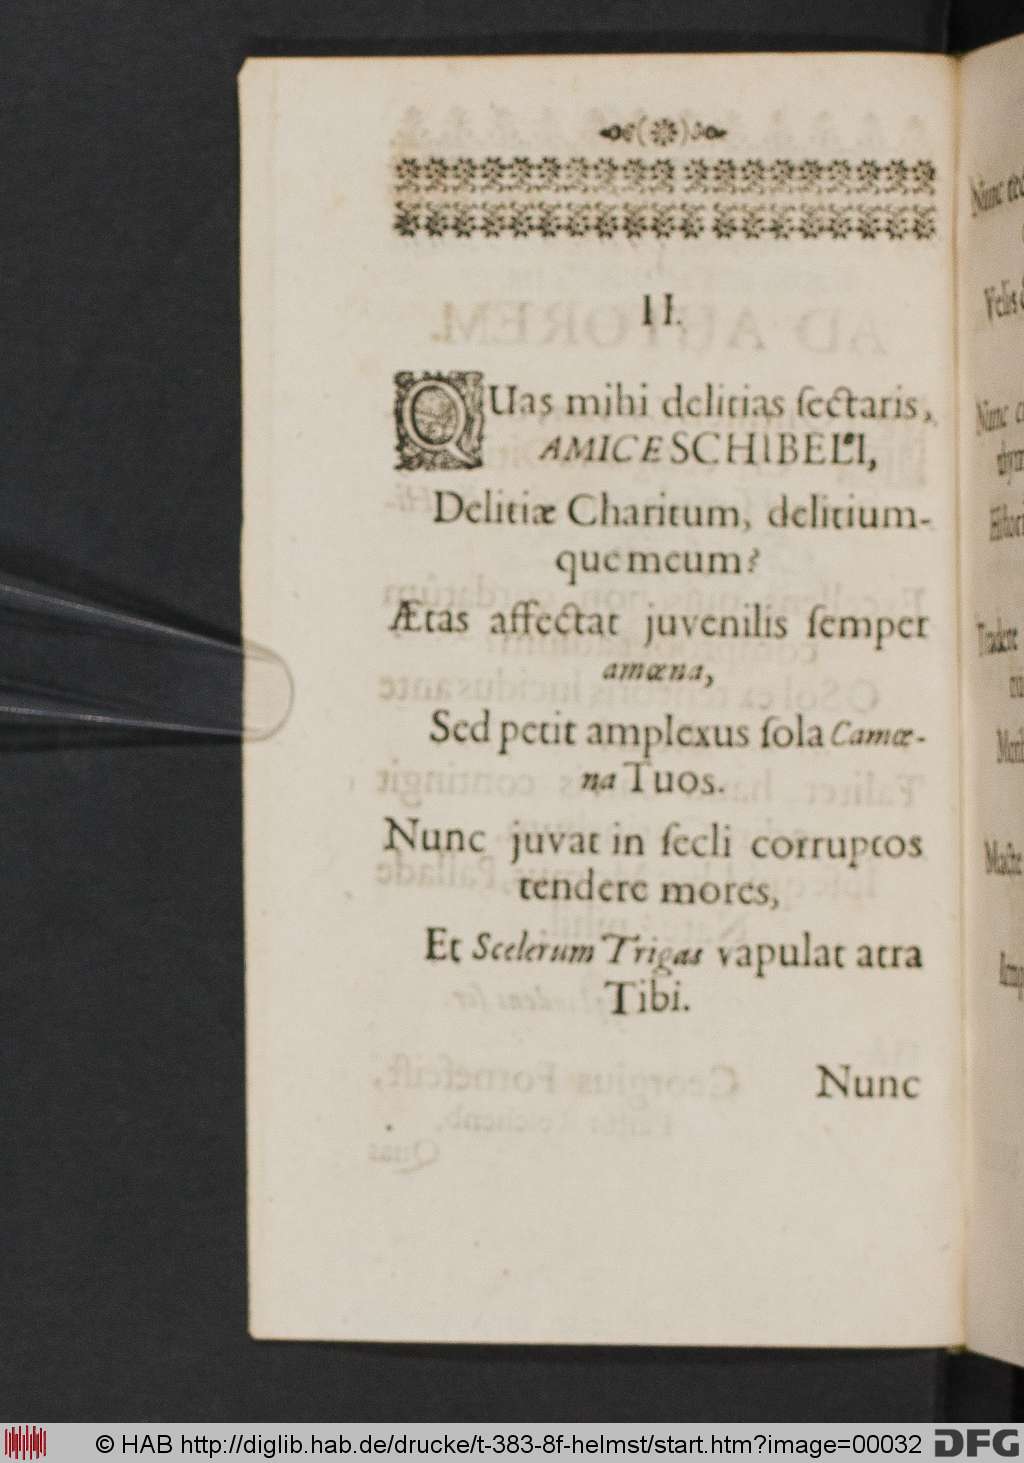 II.
QUas mihi delitias ſectaris,
AMICE SCHIBELI,
Delitiæ Charitum, delitium-
que meum?
Ætas affectat juvenilis ſemper
amœna,
Sed petit amplexus ſola Camœ-
na Tuos.
Nunc juvat in ſecli corruptos
tendere mores,
Et Scelerum Trigas vapulat atra
Tibi.
Nunc
Nunc
Velis
Nunc
Tradere
© HAB http://diglib.hab.de/drucke/t-383-8f-helmst/start.htm?image=00032 DFG